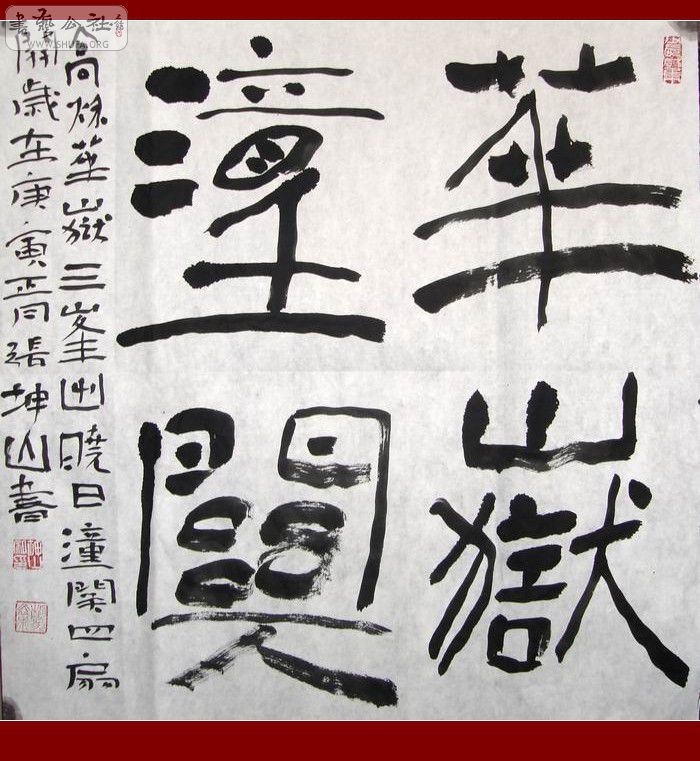 華嶽
潼關
高秌華嶽三峯出曉日潼関四扇
開歲在庚寅正月張坤山書
書藝公社
WWW.SHUFA.ORG